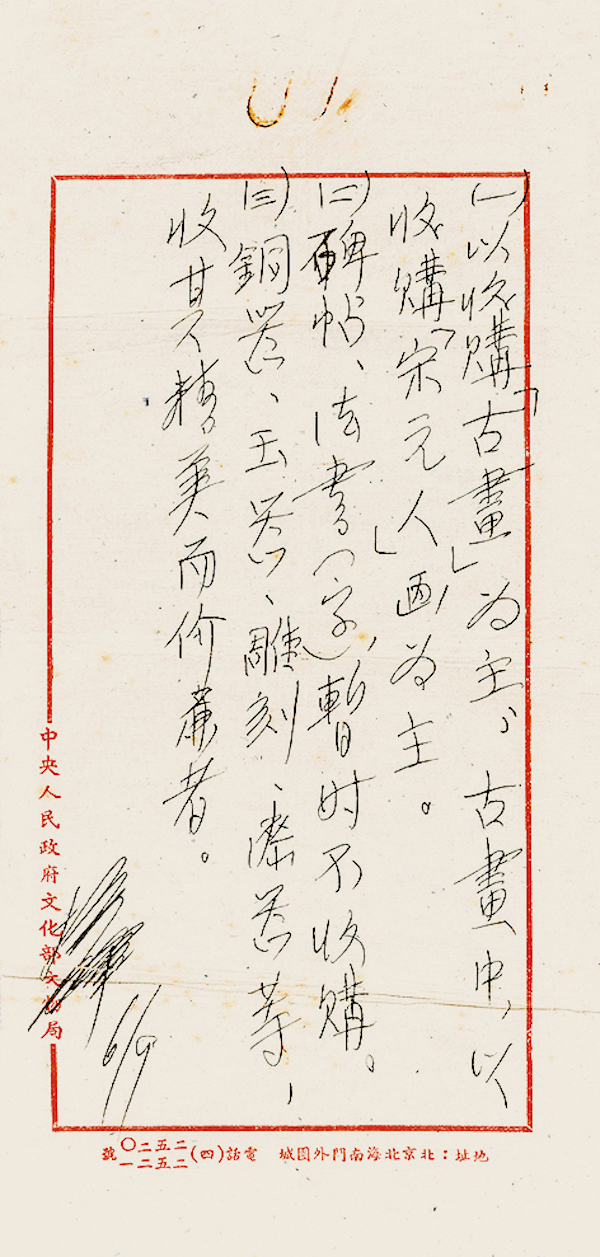 (一)以收購「古畫」为主，古畫中，以
收購「宋元人」画，为主。
(二)碑帖、法書(字)，暫时不收購。
(三)銅器、玉器、雕刻、漆器等，
收其精美而价廉者。
6/9
中央人民政府文化部文物局
地址：北京北海南門外團城 電話(四)二五二〇 二五二一 號